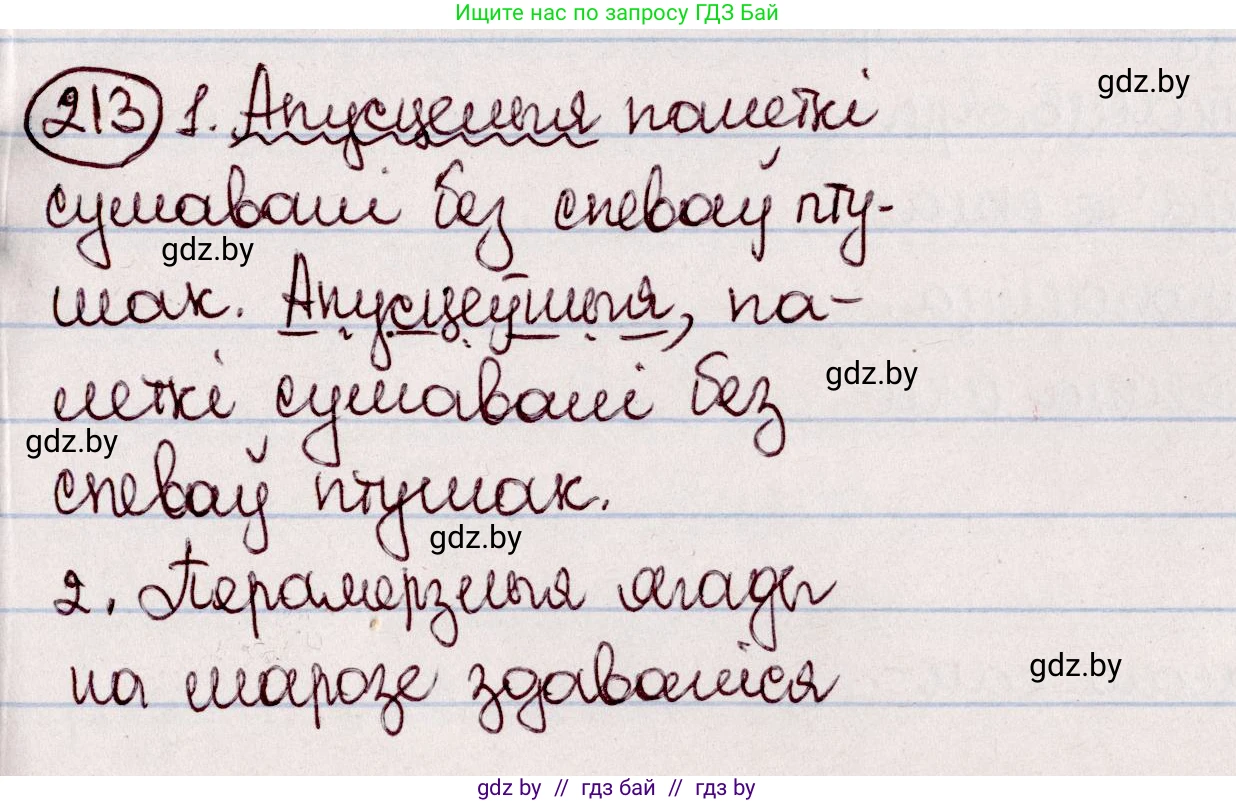 Ищите нас по запросу ГДЗ Бай
213 1. Апусцелыя палеткі
gdz.by
сумавалі без спеваў пту-
gdz.by
шак. Апусцеўшыя, па-
леткі сумавалі без
gdz.by
gdz.by
спеваў птушак.
gdz.by
2. Перамерзлыя ягады
на марозе здаваліся
gdz.by
gdz.by // гдз бай // гдз by